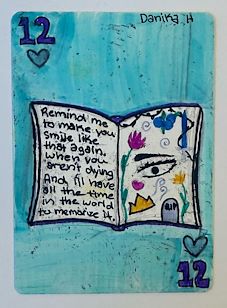 Danika H
12
Remind me
to make you
smile like
that again,
when you
aren't dying
And I'll have
all the time
in the world
to memorize it.
RIP
12